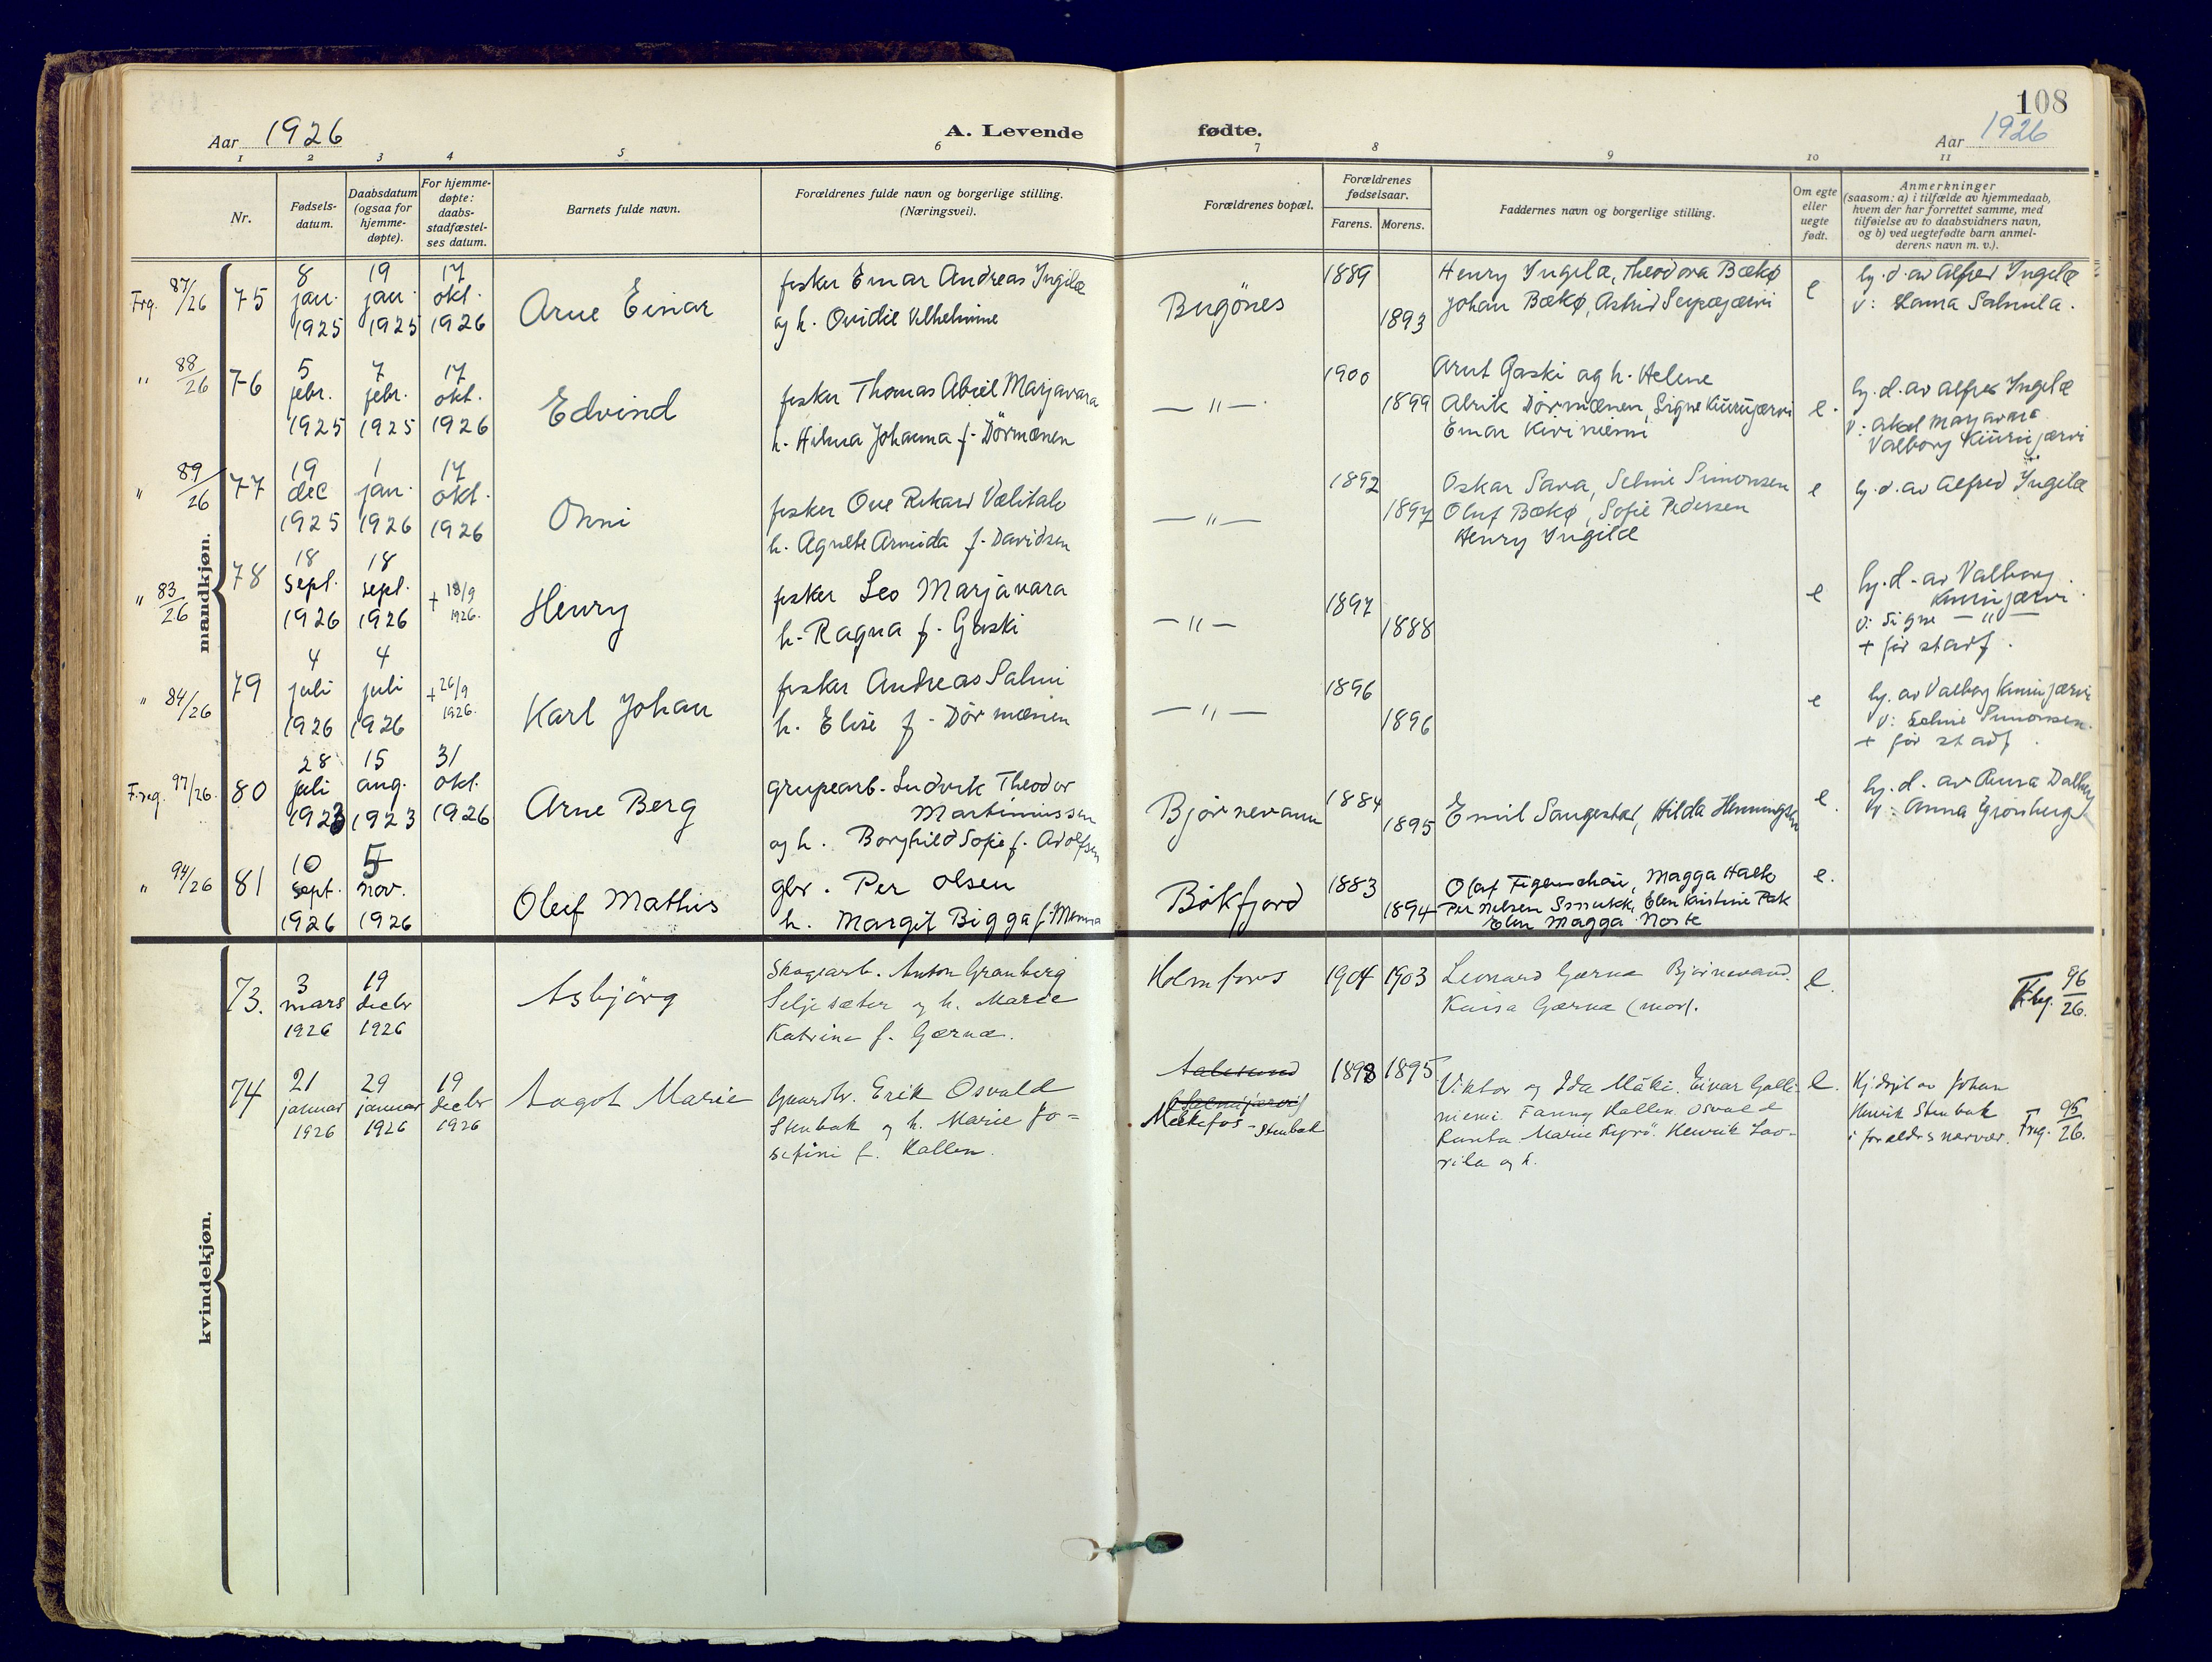 108
Aar 1926
A. Levende fødte.
Aar 1926
1 2 3 4 5 6 7 8 9 10 11
Nr.
Fødsels-
datum.
Daabsdatum
(ogsaa for
hjemme-
døpte).
For hjemme-
døpte:
daabs-
stadfæstel-
ses datum.
Barnets fulde navn.
Forældrenes fulde navn og borgerlige stilling.
(Næringsvei).
Forældrenes bopæl.
Forældrenes
fødselsaar.
Farens. Morens.
Faddernes navn og borgerlige stilling.
Om egte
eller
uegte
født.
Anmerkninger
(saasom: a) i tilfælde av hjemmedaab,
hvem der har forrettet samme, med
tilføielse av to daabsvidners navn,
og b) ved uegtefødte barn anmel-
derens navn m. v.).
mandkjøn.
Frg. 87/26
75
8
jan.
1925
19
jan.
1925
17
okt.
1926
Arne Einar
fisker Einar Andreas Ingilæ
og h. Ovidie Vilhelmine
Bugönes
1889
1893
Henry Ingilæ, Theodora Bækø
Johan Bækø, Astrid Seipæjærvi
e
hj. d. av Alfred Ingilæ
v: Hanna Salmila.
" 88/26
76
5
febr.
1925
7
febr.
1925
17
okt.
1926
Edvind
fisker Thomas Abiel Marjavara
h. Hilma Johanna f. Dörmænen
— " —
1900
1899
Arnt Gaski og h. Helene
Alrik Dörmænen, Signe Kiurujærvi
Einar Kiviniemi
e.
hj. d. av Alfred Ingilæ
v: Aksel Marjavara
Valborg Kiurujærvi
" 89/26
77
19
dec
1925
1
jan.
1926
17
okt.
1926
Onni
fisker Ove Rikard Vælitalo
h. Agnete Armida f. Davidsen
— " —
1892
1897
Oskar Sava, Selmi Simonsen
Oluf Bækø, Sofie Pedersen
Henry Ingilæ
e
hj. d. av Alfred Ingilæ
" 83/26
78
18
sept.
1926
18
sept.
1926
+ 18/9
1926.
Henry
fisker Leo Marjavara
h. Ragna f. Gaski
— " —
1897
1888
e
hj. d. av Valborg
Kiurujærvi.
v: Signe — " —
+ før stadf.
" 84/26
79
4
juli
1926
4
juli
1926
+ 26/9
1926.
Karl Johan
fisker Andreas Salmi
h. Elise f. Dörmænen
— " —
1896
1896
e
hj. av Valborg Kiurujærvi
v: Selmi Simonsen.
+ før stadf.
F.reg. 97/26.
80
28
juli
1923
15
aug.
1923
31
okt.
1926
Arne Berg
grupearb. Ludvik Theodor
Martinussen
og h. Borghild Sofie f. Adolfsen
Bjørnevann
1884
1895
Emil Saugestad, Hilda Henningsen
e.
hj. d. av Anna Dalberg
v: Anna Grønberg
" 94/26
81
10
sept.
1926
5
nov.
1926
Oluf Mathis
gbr. Per Olsen
h. Margit Bigga f. Menna
Bökfjord
1883
1894
Olaf Figenschau, Magga Halto
Per Nilsen Smukk, Elen Kristine Pak
Elen Magga Noste
e.
kvindekjøn.
73.
3
mars
1926
19
decbr
1926
Asbjörg
Skogsarb. Anton Granberg
Seljesæter og h. Marie
Katrina f. Gærna.
Holmfoss
1904 1903
Leonard Gærna Bjørnevand.
Kaisa Gærna (mor).
e.
Frg. 96/26.
74
21
januar
1926
29
januar
1926
19
decbr
1926
Aagot Marie
Gaardbr. Erik Osvald
Stenbak og h. Marie Jo-
sefine f. Kallen.
Melkefos - Stenbak
1898 1895
Viktor og Ida Mäki. Einar Galli-
niemi. Fanny Kallen. Osvald
Ranta Marie Kyrö. Henrik Lav-
rila og h.
e.
Hj.døpt av Johan
Henrik Stenbak
i forældres nærvær. Freg. 95/26.